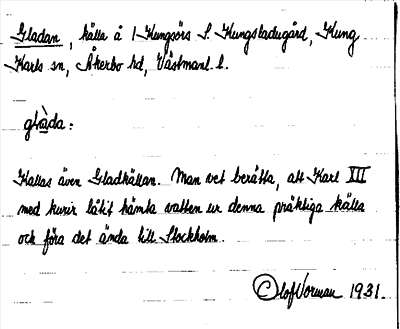 Gladan, källa å 1 Kungsörs S. Kungsladugård, Kung
Karls sn, Åkerbo hd, Västmanl. l.
glàda:
Kallas även Gladkällan. Man vet berätta, att Karl XII
med kurir låtit hämta vatten ur denna präktiga källa
och föra det ända till Stockholm.
Olof Norman 1931.